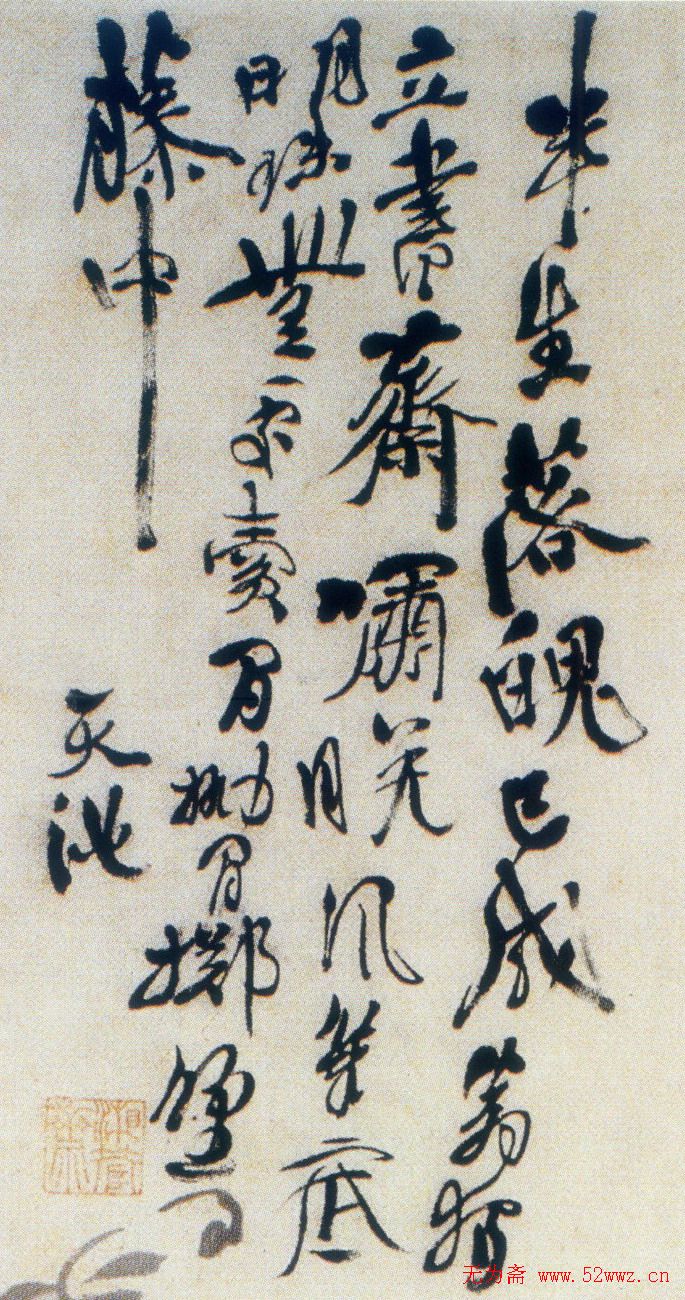 半生落魄已成翁獨
立書齋嘯晚風筆底
明珠無處賣閒拋閒擲野
藤中
天池
无为斋 www.52wwz.cn